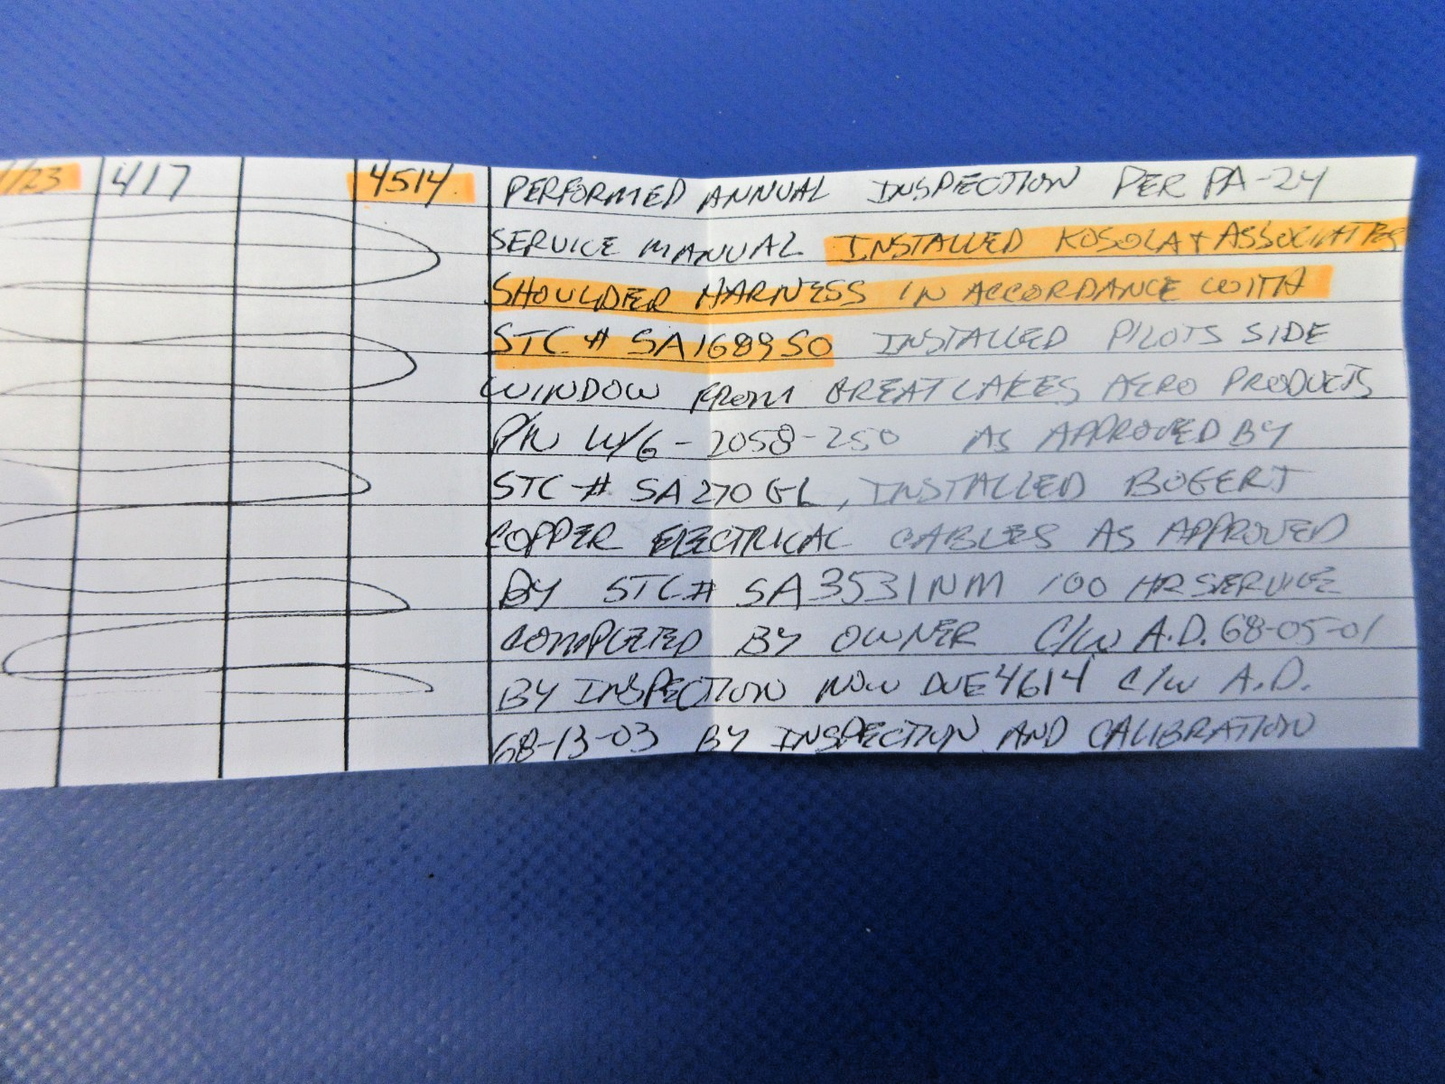 1/23 417 4514 PERFORMED ANNUAL INSPECTION PER PA-24
SERVICE MANUAL INSTALLED KOSOLA + ASSOCIATES
SHOULDER HARNESS IN ACCORDANCE WITH
STC # SA1689SO INSTALLED PILOTS SIDE
WINDOW FROM GREAT LAKES AERO PRODUCTS
P/N W/G-2058-250 AS APPROVED BY
STC # SA270GL, INSTALLED BOGERT
COPPER ELECTRICAL CABLES AS APPROVED
BY STC# SA3531NM 100 HR SERVICE
COMPLETED BY OWNER C/W A.D. 68-05-01
BY INSPECTION NOW DUE 4614 C/W A.D.
68-13-03 BY INSPECTION AND CALIBRATION